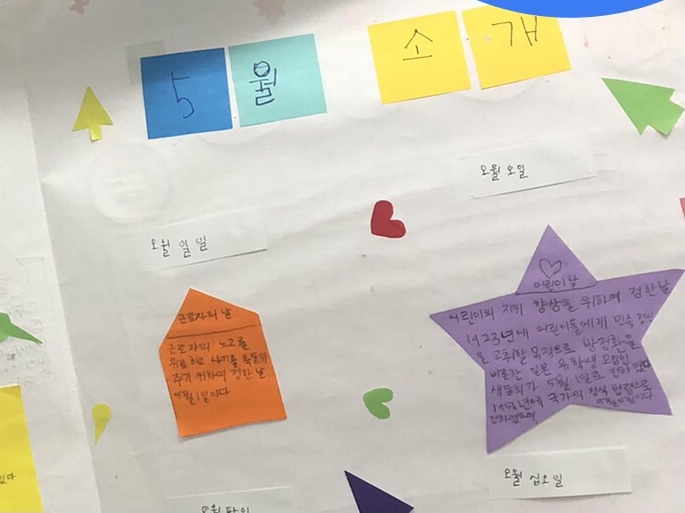 5월 소개
오월 오일
오월 일일
근로자의 날
근로자의 노고를
위로하고 사기를 북돋워
주기 위하여 정한 날
5월 1일이다
어린이날
어린이의 지위 향상을 위하여 정한 날
1923년에 어린이들에게 민족 정신
을 고취할 목적으로 방정환을
비롯한 일본 유학생 모임인
색동회가 5월 1일로
5월 5일이다
오월 십오일
오월 팔일